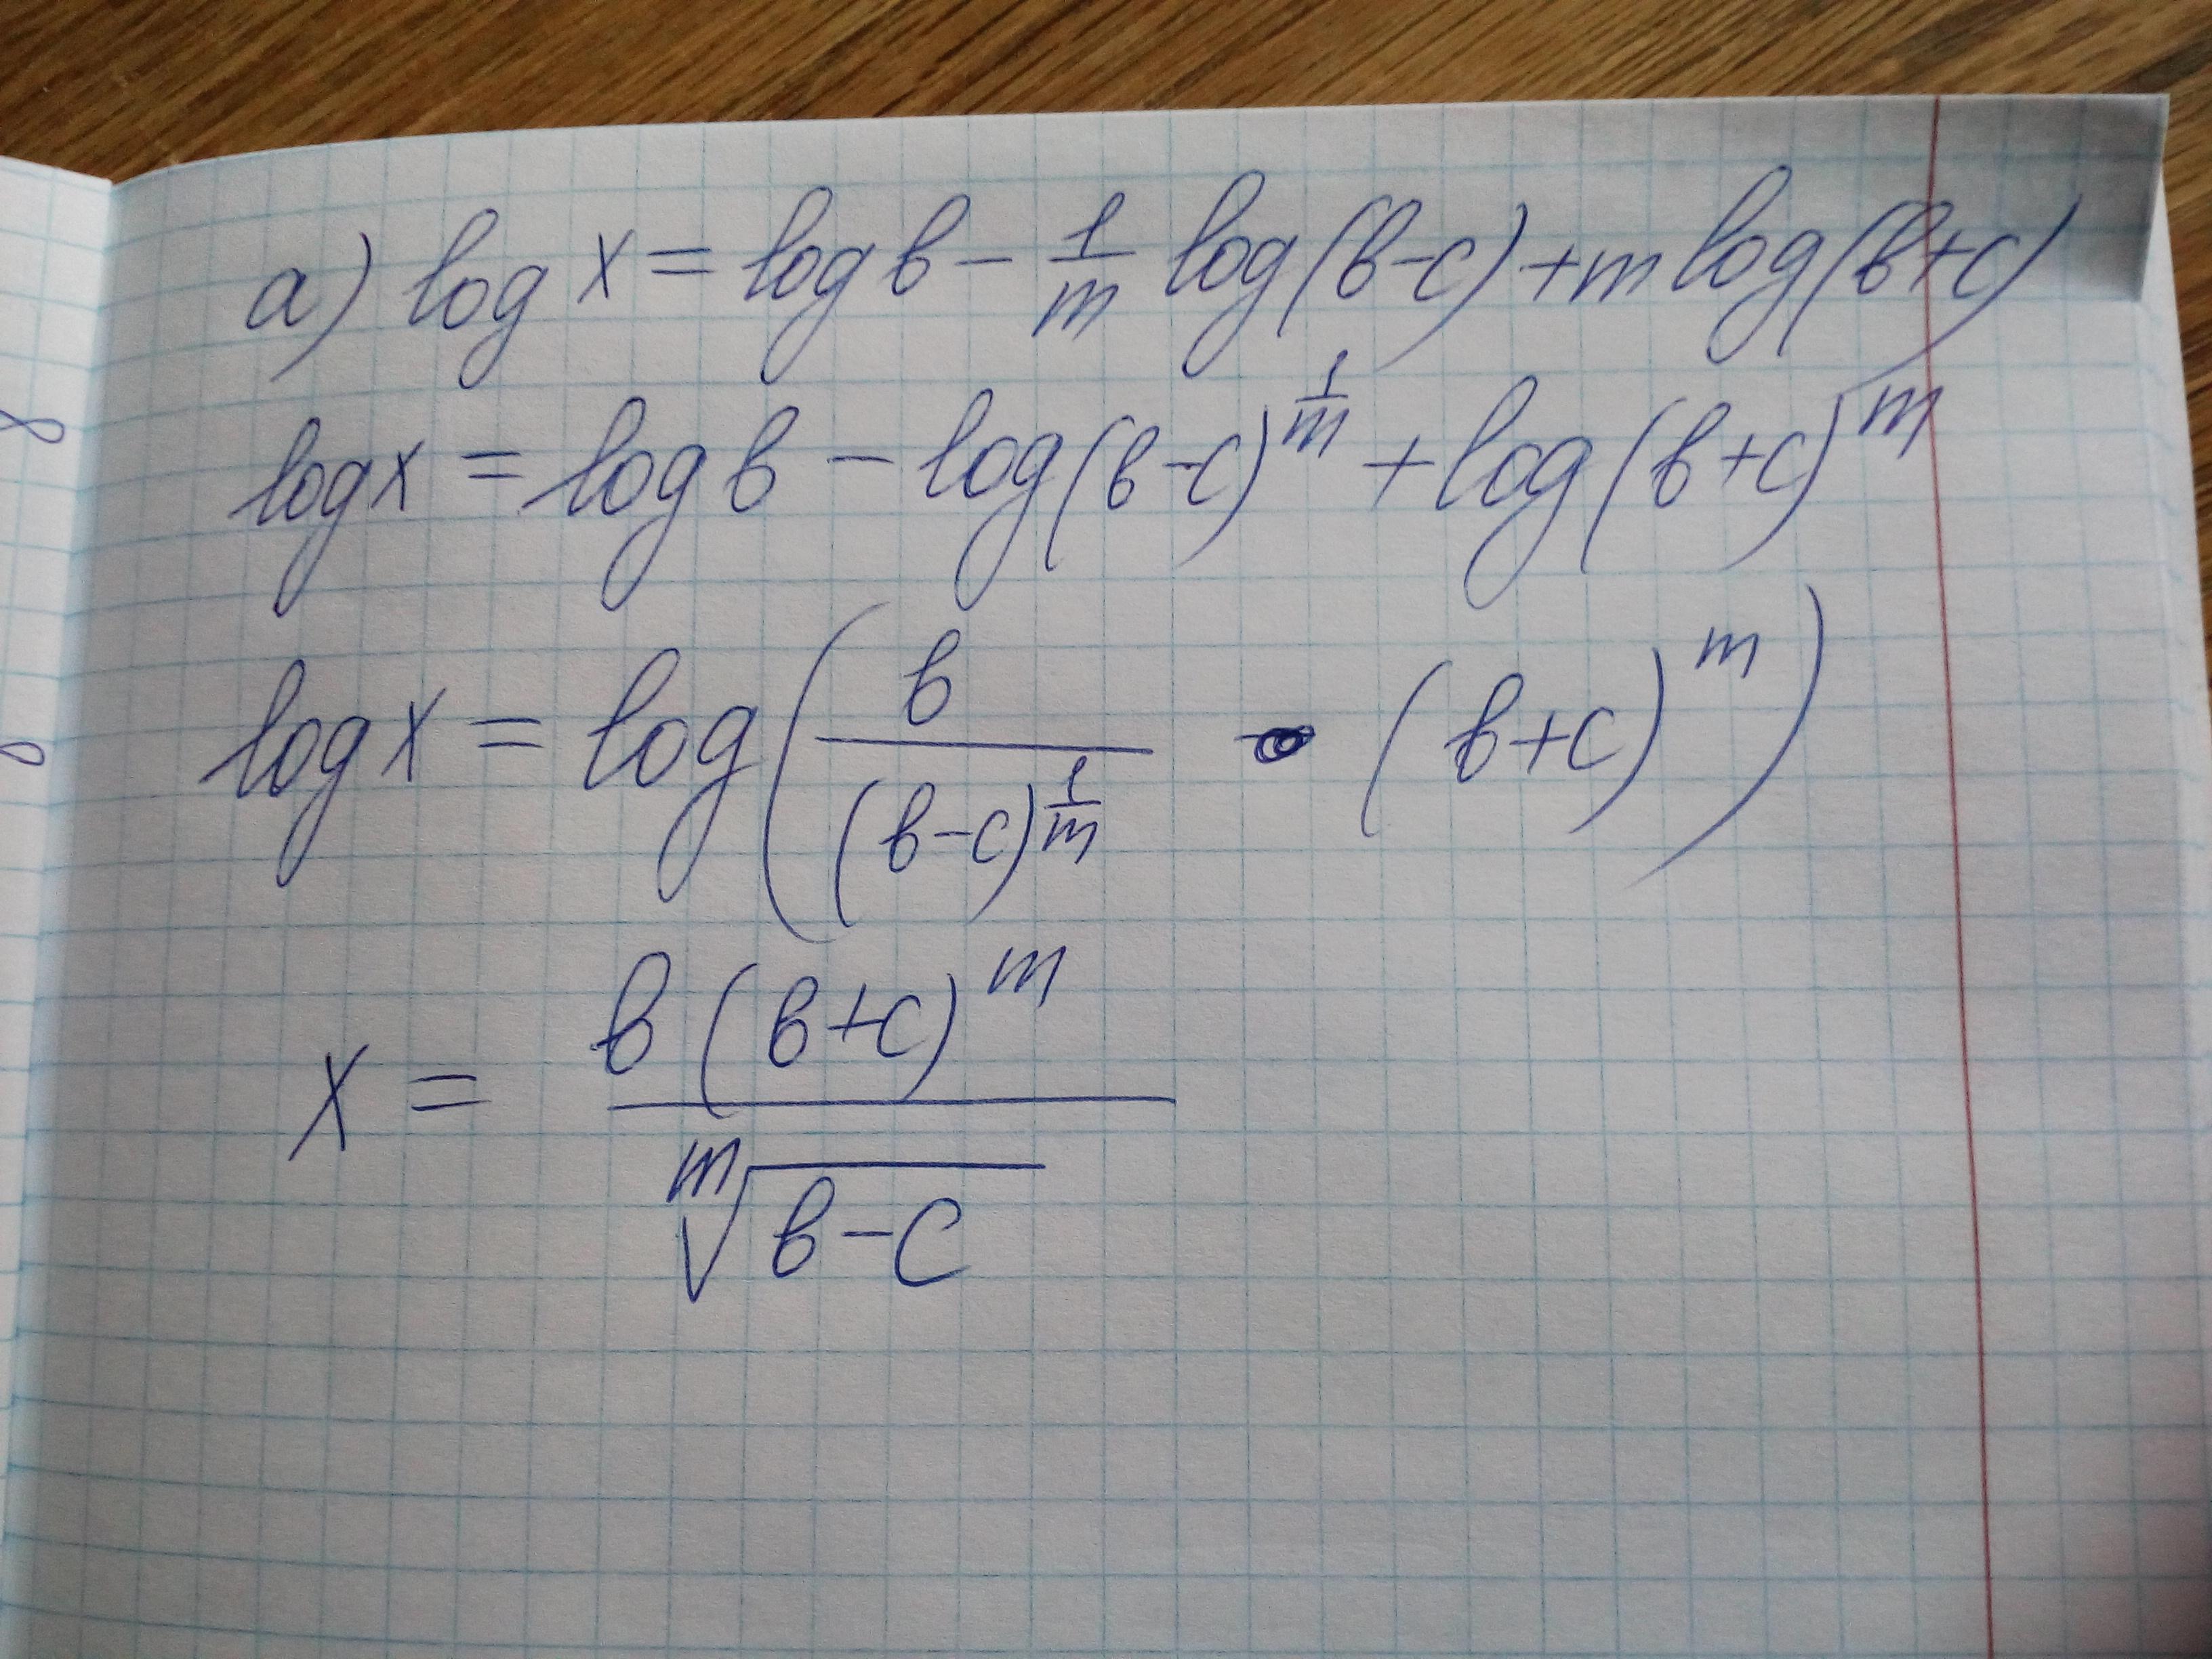 a) log x = log b - 1/m log(b-c) + m log(b+c)
log x = log b - log(b-c)^(1/m) + log(b+c)^m
log x = log(b/(b-c)^(1/m) · (b+c)^m)
x = b(b+c)^m / ᵐ√(b-c)